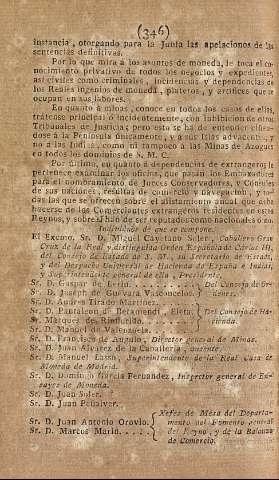 (346)
instancia, otorgando para la Junta las apelaciones de las
sentencias definitivas.
Por lo que mira á los asuntos de moneda, le toca el co-
nocimiento privativo de todos los negocios y expedientes,
así civiles como criminales, incidencias y dependencias de
los Reales ingenios de moneda, plateros, y artífices que se
ocupan en sus labores.
En quanto á minas, conoce en todos los casos de ellas,
trátense principal ó incidentemente, con inhibicion de otros
Tribunales de Justicia; pero esto se ha de entender ciñén-
dose á la Península únicamente, y á sus Islas adyacentes, y
no á las Indias, como ni tampoco á las Minas de Azogues
en todos los dominios de S. M. C.
Por último, en quanto á dependencias de extrangeros le
pertenece examinar los oficios, que pasan los Embaxadores
para el nombramiento de Jueces Conservadores, y Cónsules
de sus naciones, reglas de comercio y navegacion, y to-
das las que se ofrecen sobre el alistamiento anual que debe
hacerse de los Comerciantes extrangeros residentes en estos
Reynos, y sobre si han de ser reputados como nacionales ó no.
Individuos de que se compone.
El Excmo. Sr. D. Miguel Cayetano Soler, Caballero Gran
Cruz de la Real y distinguida Orden Española de Cárlos III,
del Consejo de Estado de S. M., su Secretario de Estado,
y del Despacho Universal de Hacienda de España é Indias,
y Sup. Intendente general de ella, Presidente.
Sr. D. Gaspar de Lerin. Del Consejo de Or-
Sr. D. Joseph de Guevara Vasconcelos. denes.
Sr. D. Andres Tirado Martinez.
Sr. D. Pantaleon de Beramendi, Eleta. Del Consejo de Ha-
Sr. Marques de cienda.
Sr. D. Manuel de Valenzuela.
Sr. D. Francisco de Angulo, Director general de Minas.
Sr. D. Juan Alvarez de la Caballería, ausente.
Sr. D. Manuel Superintendente de la Real Casa de
Moneda de Madrid.
Sr. D. Domingo García Fernandez, Inspector general de En-
sayes de Moneda.
Sr. D. Juan Soler.
Sr. D. Juan Peñalver.
Xefes de Mesa del Departa-
Sr. D. Juan Antonio Orovio. mento del Fomento general
Sr. D. Marcos Marin. del Reyno, y de la Balanza
de Comercio.